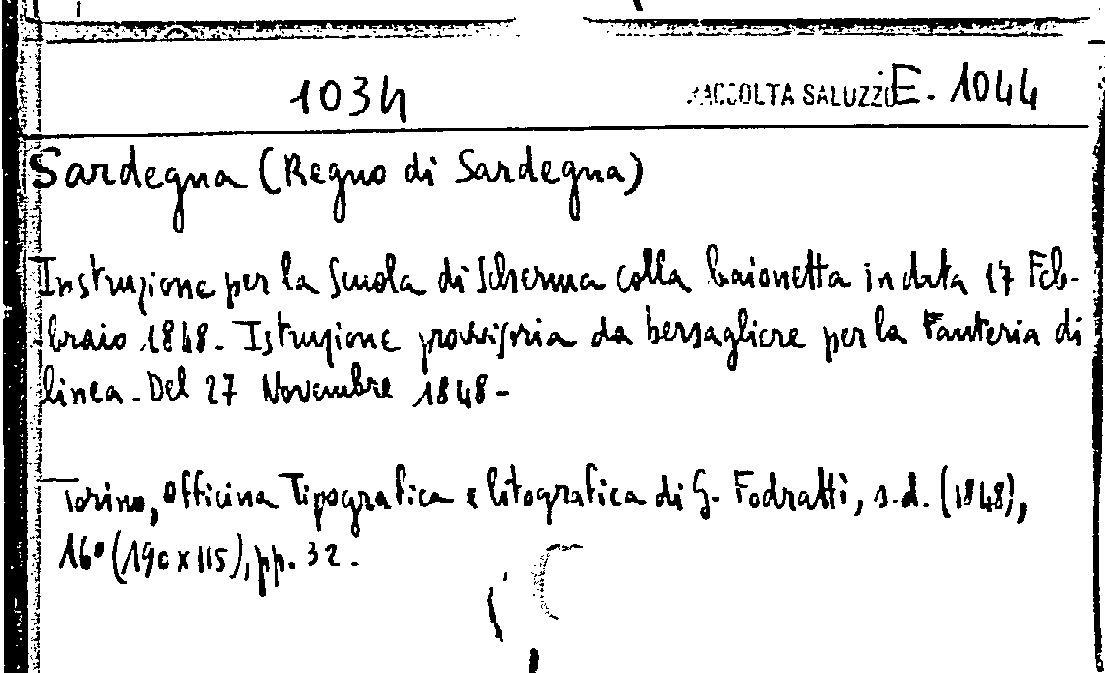 1034 RACCOLTA SALUZZO E. 1044
Sardegna (Regno di Sardegna)
Instruzione per la Scuola di Scherma colla baionetta in data 17 Feb-
braio 1848. Istruzione provvisoria da bersagliere per la Fanteria di
linea. Del 27 Novembre 1848-
Torino, Officina Tipografica e litografica di G. Fodratti, s.d. (1848),
16° (190x115), pp. 32.